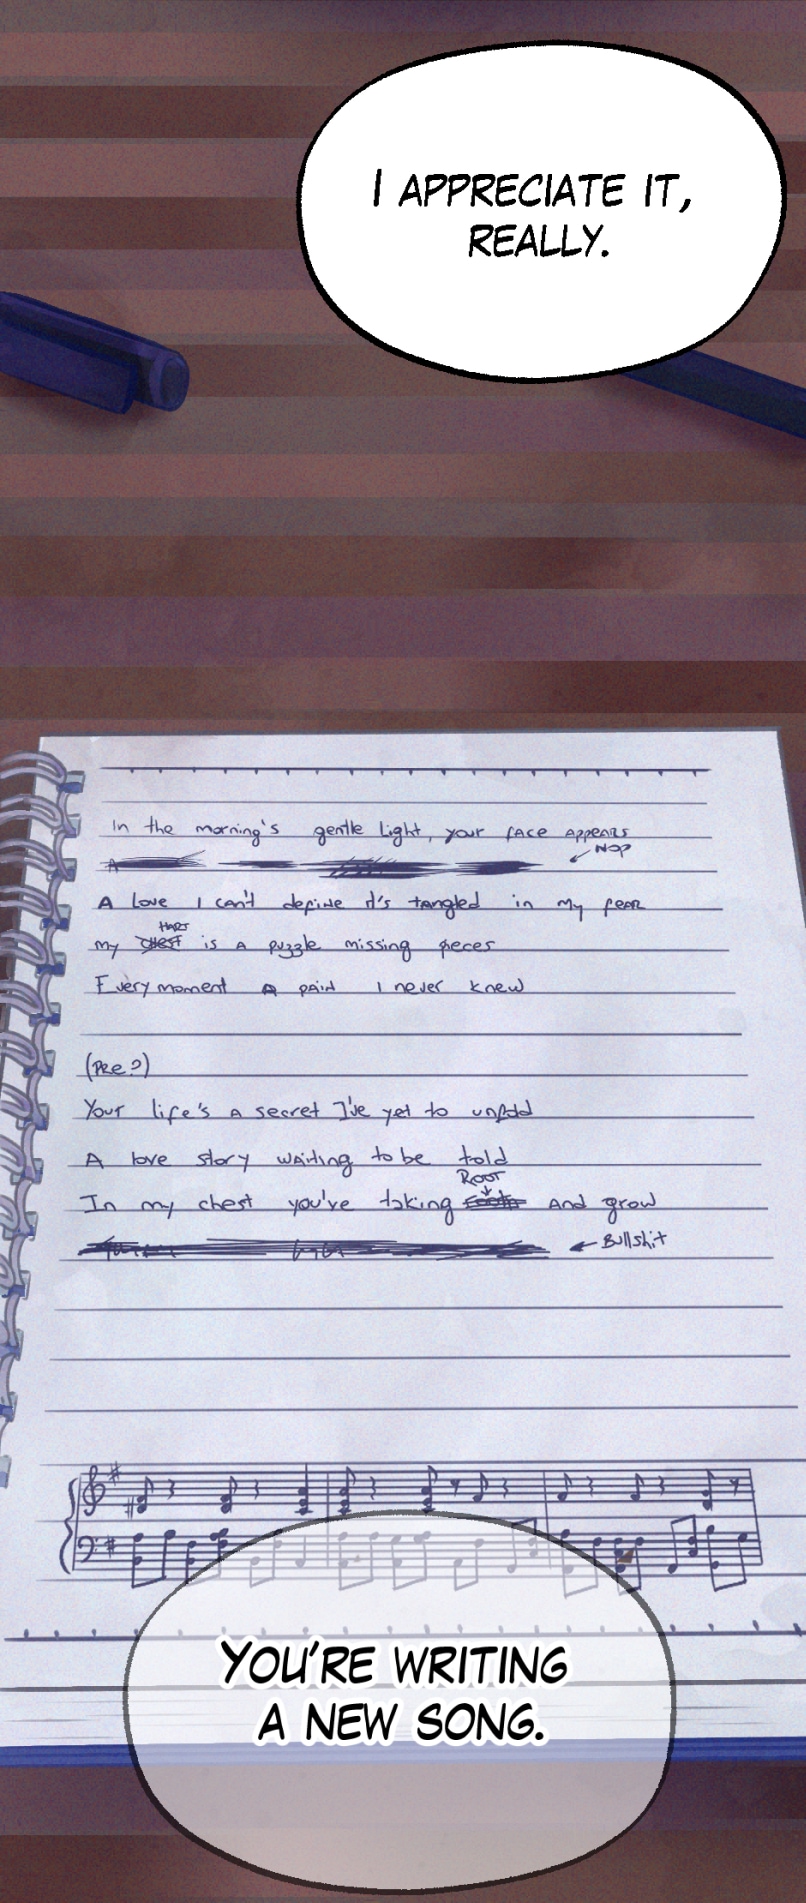 I APPRECIATE IT,
REALLY.
In the morning's gentle light, your face appears
NOP
A love I can't define it's tangled in my fear
HART
my chest is a puzzle missing pieces
Every moment a pain I never knew
(PRE?)
Your life's a secret I've yet to unfold
A love story waiting to be told
ROOT
In my chest you've taking and grow
Bullshit
YOU'RE WRITING
A NEW SONG.